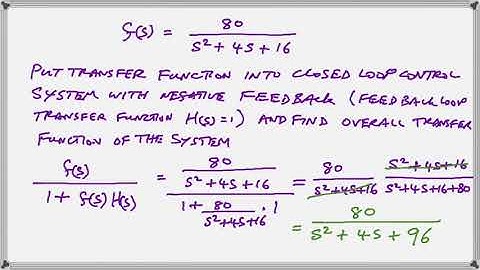 G(s) = 80 / (s² + 4s + 16)
PUT TRANSFER FUNCTION INTO CLOSED LOOP CONTROL
SYSTEM WITH NEGATIVE FEEDBACK (FEEDBACK LOOP
TRANSFER FUNCTION H(s) = 1) AND FIND OVERALL TRANSFER
FUNCTION OF THE SYSTEM
G(s) / (1 + G(s) H(s)) = (80 / (s² + 4s + 16)) / (1 + 80 / (s² + 4s + 16) · 1) = 80 / (s² + 4s + 16) (s² + 4s + 16) / (s² + 4s + 16 + 80)
= 80 / (s² + 4s + 96)